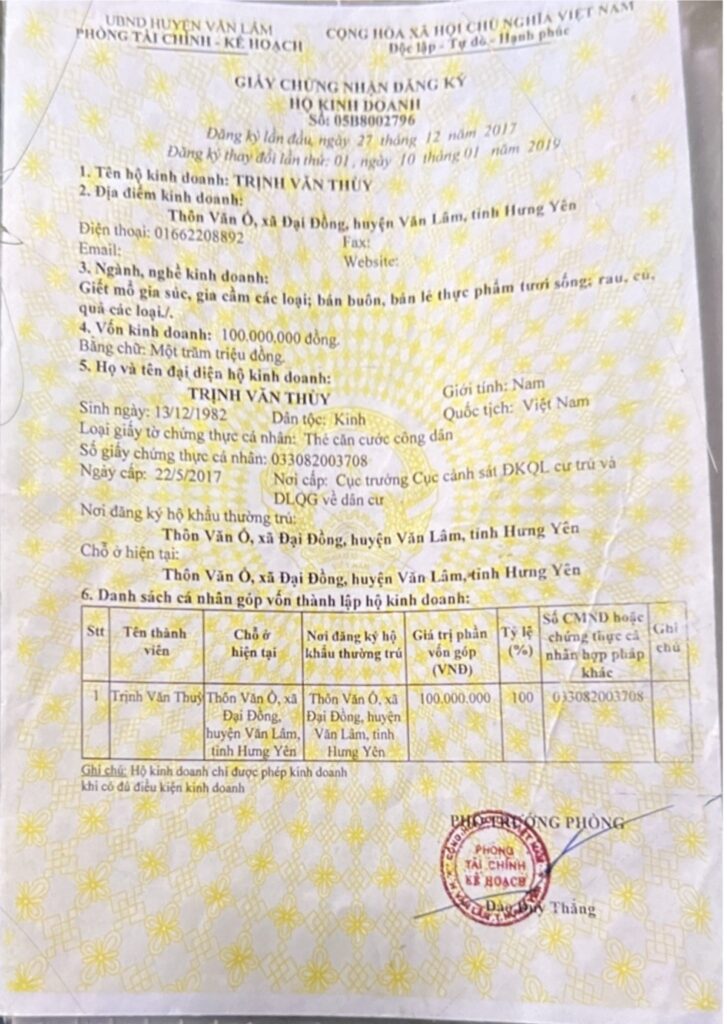 UBND HUYỆN VĂN LÂM
PHÒNG TÀI CHÍNH - KẾ HOẠCH
CỘNG HÒA XÃ HỘI CHỦ NGHĨA VIỆT NAM
Độc lập - Tự do - Hạnh phúc
GIẤY CHỨNG NHẬN ĐĂNG KÝ
HỘ KINH DOANH
Số: 05B8002796
Đăng ký lần đầu, ngày 27 tháng 12 năm 2017
Đăng ký thay đổi lần thứ: 01, ngày 10 tháng 01 năm 2019
1. Tên hộ kinh doanh: TRỊNH VĂN THÙY
2. Địa điểm kinh doanh:
Thôn Văn Ổ, xã Đại Đồng, huyện Văn Lâm, tỉnh Hưng Yên
Điện thoại: 01662208892 Fax:
Email: Website:
3. Ngành, nghề kinh doanh:
Giết mổ gia súc, gia cầm các loại; bán buôn, bán lẻ thực phẩm tươi sống; rau, củ,
quả các loại./.
4. Vốn kinh doanh: 100.000.000 đồng.
Bằng chữ: Một trăm triệu đồng.
5. Họ và tên đại diện hộ kinh doanh:
TRỊNH VĂN THÙY Giới tính: Nam
Sinh ngày: 13/12/1982 Dân tộc: Kinh Quốc tịch: Việt Nam
Loại giấy tờ chứng thực cá nhân: Thẻ căn cước công dân
Số giấy chứng thực cá nhân: 033082003708
Ngày cấp: 22/5/2017 Nơi cấp: Cục trưởng Cục cảnh sát ĐKQL cư trú và
DLQG về dân cư
Nơi đăng ký hộ khẩu thường trú:
Thôn Văn Ổ, xã Đại Đồng, huyện Văn Lâm, tỉnh Hưng Yên
Chỗ ở hiện tại:
Thôn Văn Ổ, xã Đại Đồng, huyện Văn Lâm, tỉnh Hưng Yên
6. Danh sách cá nhân góp vốn thành lập hộ kinh doanh:
Stt
Tên thành
viên
Chỗ ở
hiện tại
Nơi đăng ký hộ
khẩu thường trú
Giá trị phần
vốn góp
(VNĐ)
Tỷ lệ
(%)
Số CMND hoặc
chứng thực cá
nhân hợp pháp
khác
Ghi
chú
1
Trịnh Văn Thuỳ
Thôn Văn Ổ, xã
Đại Đồng,
huyện Văn Lâm,
tỉnh Hưng Yên
Thôn Văn Ổ, xã
Đại Đồng, huyện
Văn Lâm, tỉnh
Hưng Yên
100.000.000
100
033082003708
Ghi chú: Hộ kinh doanh chỉ được phép kinh doanh
khi có đủ điều kiện kinh doanh
PHÓ TRƯỞNG PHÒNG
PHÒNG
TÀI CHÍNH
KẾ HOẠCH
Đào Duy Thắng